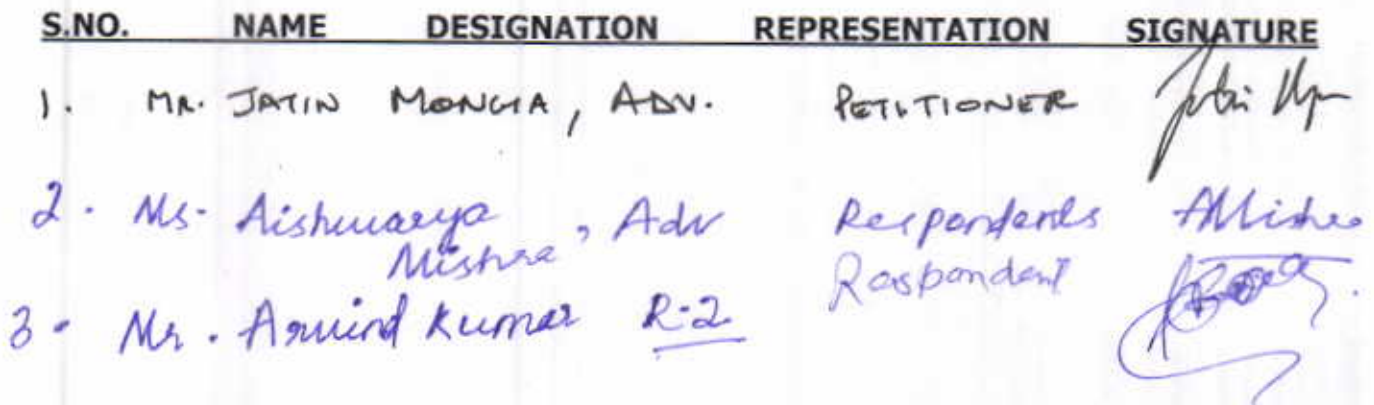 S.NO. NAME DESIGNATION REPRESENTATION SIGNATURE
1. MR. JATIN MONGIA, ADV. PETITIONER
2. Ms. Aishwarya Mishra, Adv Respondents AMishra
3. Mr. Arvind Kumar R-2 Respondent